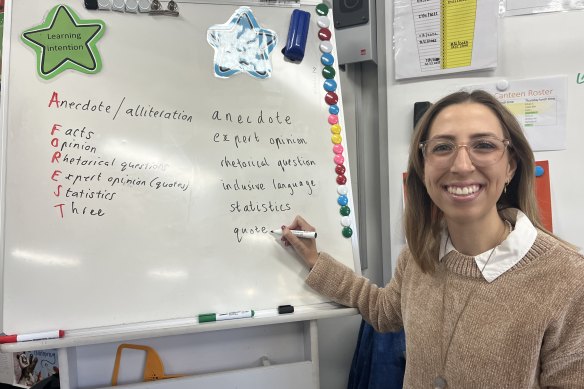 Learning
intention
Anecdote/alliteration
Facts
Opinion
Rhetorical questions
Expert opinion (quotes)
Statistics
Three
anecdote
expert opinion
rhetorical question
inclusive language
statistics
quote
Canteen Roster